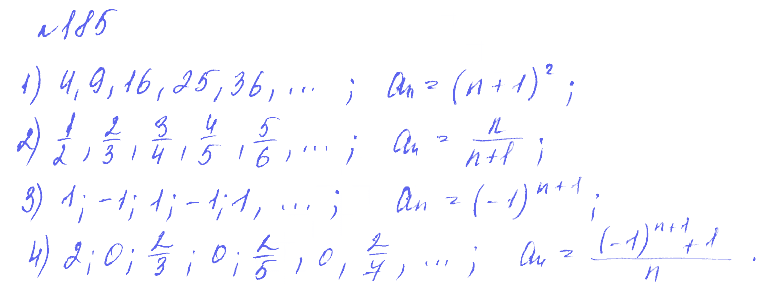 №185
1) 4, 9, 16, 25, 36, ... ; aₙ = (n+1)² ;
2) 1/2, 2/3, 3/4, 4/5, 5/6, ... ; aₙ = n/(n+1) ;
3) 1; -1; 1; -1; 1, ... ; aₙ = (-1)ⁿ⁺¹ ;
4) 2; 0; 2/3; 0; 2/5, 0, 2/7, ... ; aₙ = ((-1)ⁿ⁺¹+1)/n .